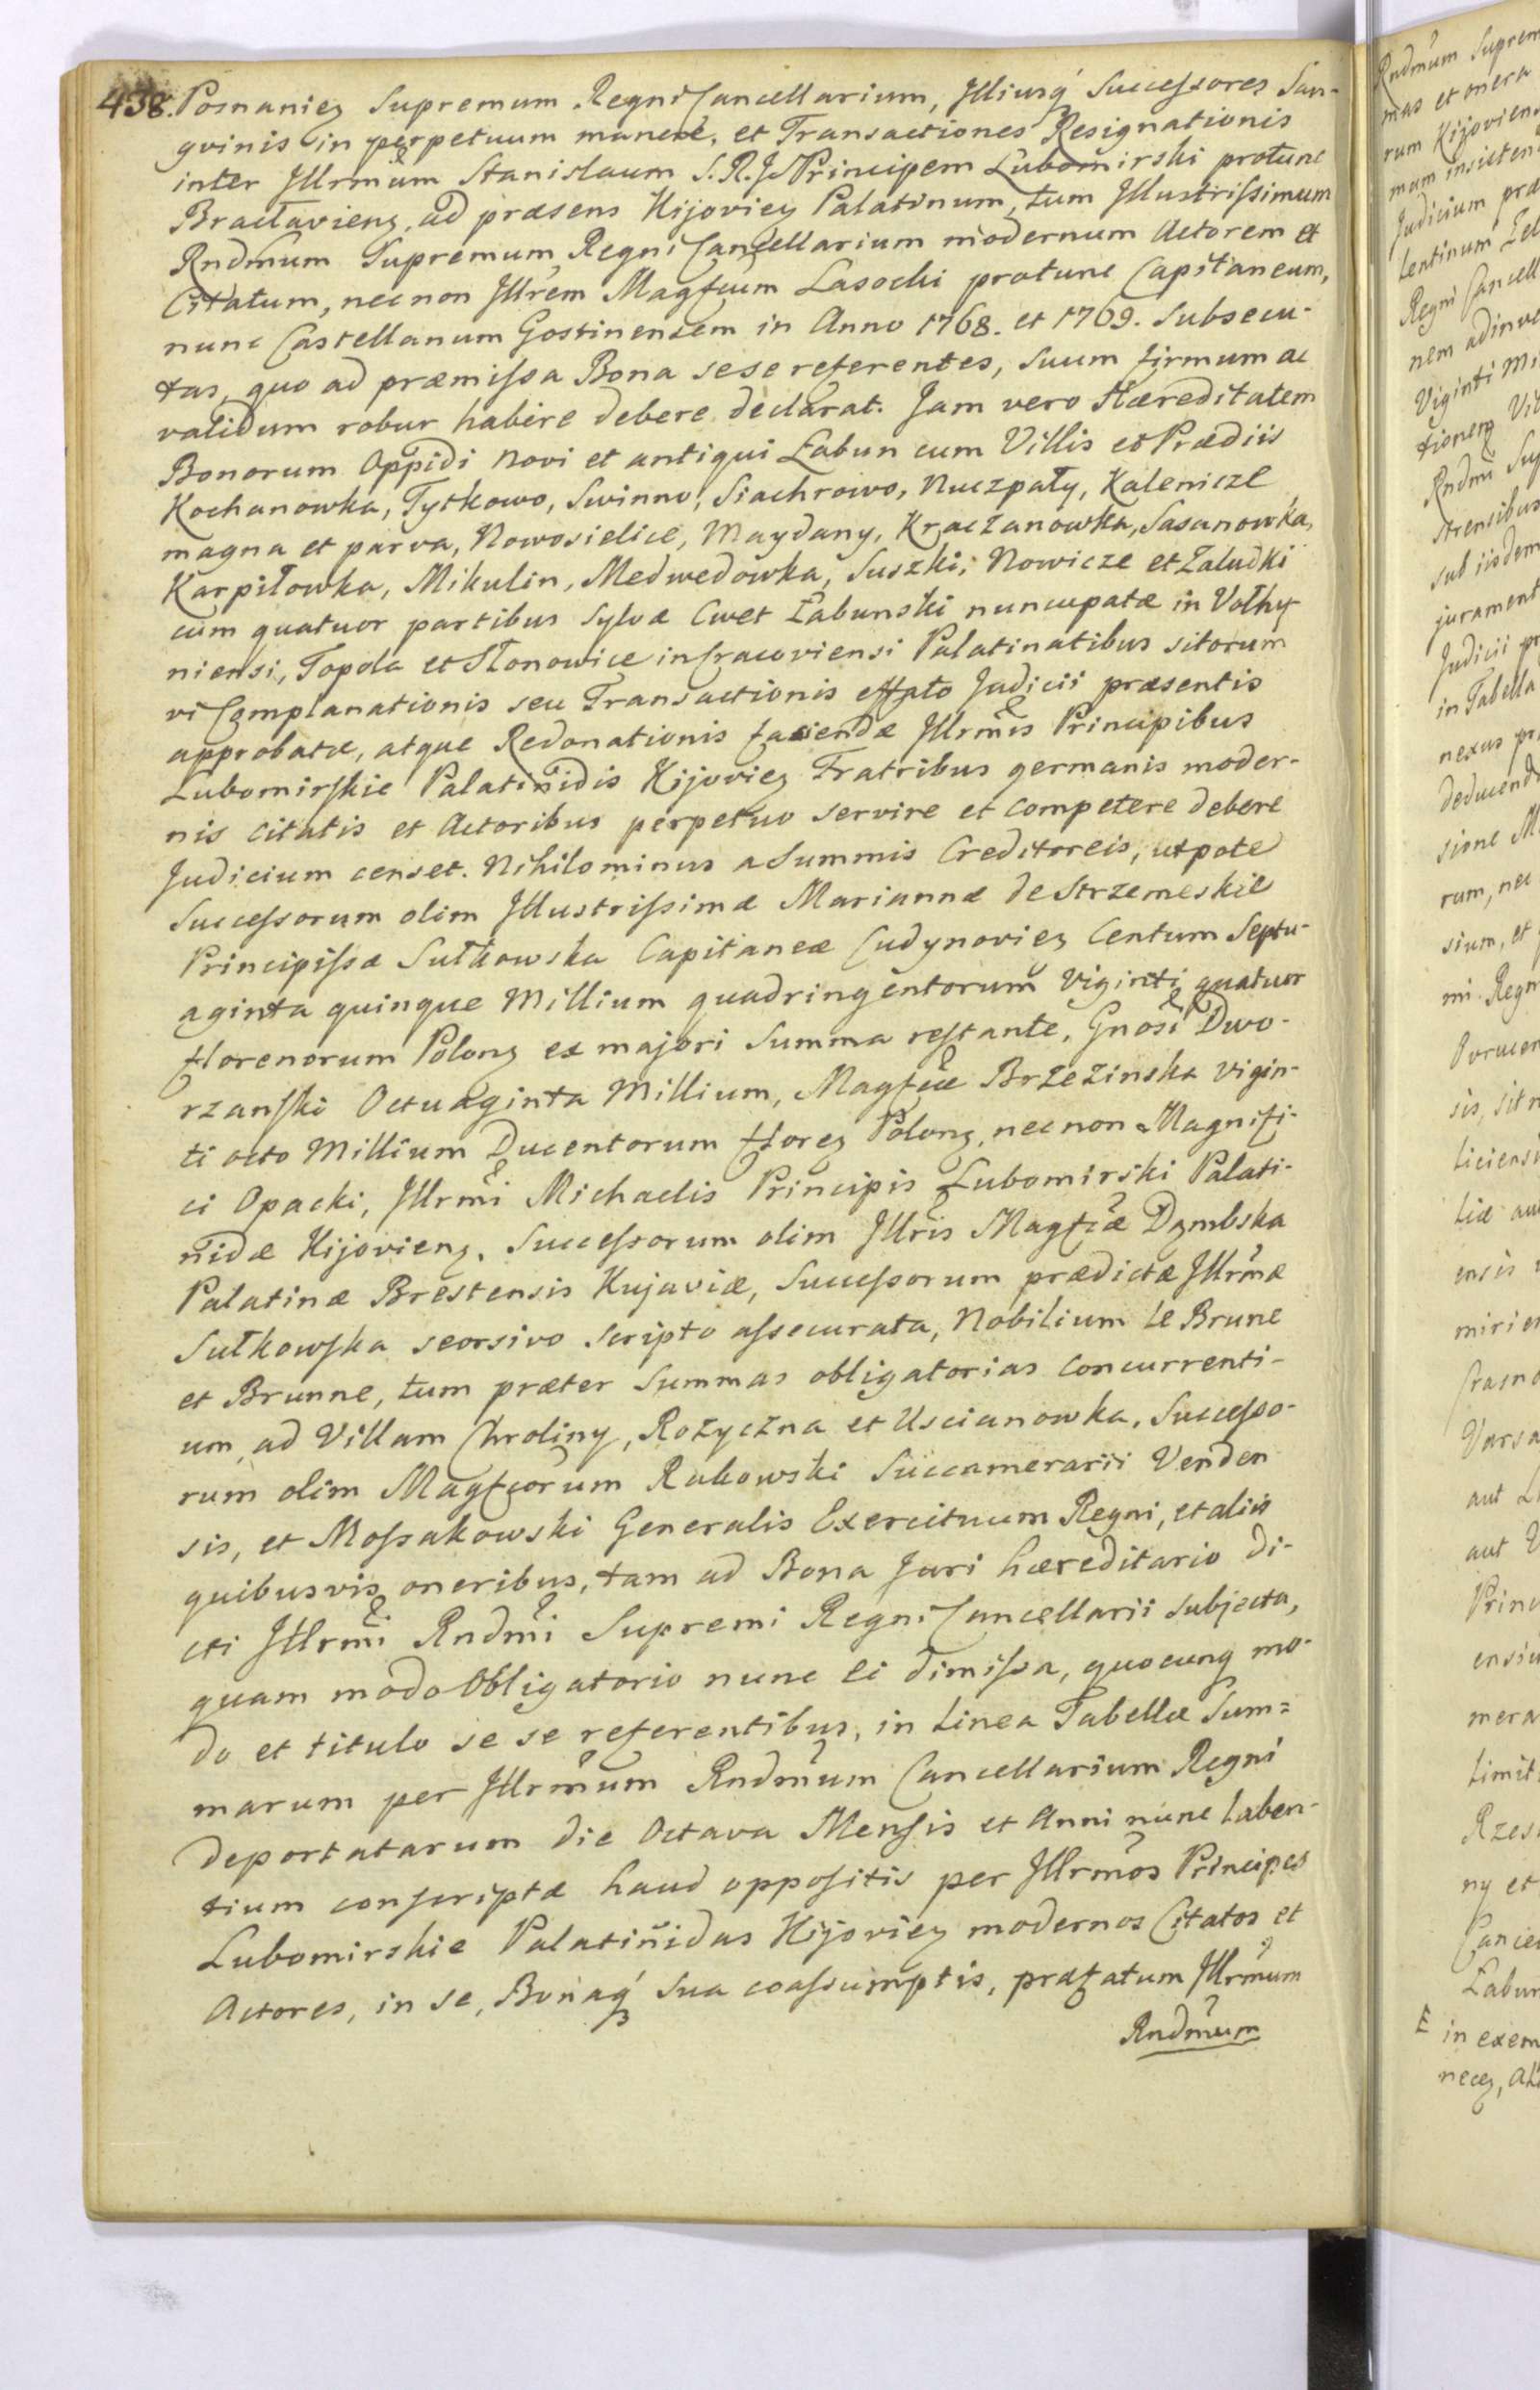 438. Posnanieꝫ Supremum Regni Cancellarium, Jlliusq́ Successores San-
gvinis in perpetuum manere, et Transactiones Resignationis
inter Jllrmum Stanislaum S.R.J. Principem Lubomirski protunc
Bractavienꝫ, ad præsens Kijovieꝫ Palatinum, tum Jllustrissimum
Rndmum Supremum Regni Cancellarium modernum Actorem et
Citatum, nec non Jllrem Magfcum Lasocki protunc Capitaneum,
nunc Castellanum Gostinensem in Anno 1768. et 1769. Subsecu-
tas, quo ad præmissa Bona sese referentes, suum firmum ac
validum robur habere debere declarat. Jam vero Hæreditatem
Bonorum Oppidi Novi et antiqui Łabun cum Villis et Prædiis
Kochanowka, Tytkowo, Swinno, Siachrowo, Nuczpały, Kalenicze
magna et parva, Nowosielice, Maydany, Kraczanowka, Sasanowka,
Karpiłowka, Mikulin, Medwedowka, Suszki, Nowicze et Zaludki
cum quatuor partibus Sylvæ Cwet Łabunski nuncupatæ in Volhy-
niensi, Topola et Stonowice in Cracoviensi Palatinatibus sitorum
vi Complanationis seu Transactionis effato Judicii præsentis
approbatæ, atque Redonationis faciendæ Jllrmis Principibus
Lubomirskie Palatinidis Kijovieꝫ Fratribus germanis moder-
nis citatis et Actoribus perpetuo servire et competere debere
Judicium censet. Nihilominus a Summis Creditoreis, utpote
Successorum olim Jllustrissimæ Mariannæ de Strzemeskie
Principissæ Sułkowska Capitaneæ Cudynovieꝫ Centum Septu-
aginta quinque Millium quadringentorum Viginti quatuor
florenorum Polonꝫ ex majori Summa restante, Gnosi Dwo-
rzanski Octuaginta Millium, Magfcæ Brzezinska vigin-
ti octo Millium Ducentorum floreꝫ Polonꝫ, nec non Magnifi-
ci Opacki, Jllrmi Michaelis Principis Lubomirski Palati-
nidæ Kijovienꝫ, Successorum olim Jllris Magfcæ Dąmbska
Palatinæ Brestensis Kujaviæ, Successorum prædictæ Jllrmæ
Sułkowska seorsivo scripto assecurata, Nobilium le Brune
et Brunne, tum præter Summas obligatorias concurrenti-
um, ad Villam Chroliny, Rozyczna et Uscianowka, Successo-
rum olim Magfcorum Rakowski Succamerarii Venden
sis, et Mossakowski Generalis Exercituum Regni, et aliis
quibusvis oneribus, tam ad Bona Juri hæreditario di-
cti Jllrmi Rndmi Supremi Regni Cancellarii subjecta,
quam modo Obligatorio nunc ei dimissa, quocunq mo-
do et titulo se se referentibus, in Linea Tabellæ Sum=
marum per Jllrmum Rndmum Cancellarium Regni
deportatarum die Octava Mensis et Anni nunc laben-
tium conscriptæ haud oppositis per Jllrmos Principes
Lubomirskie Palatinidas Kijovieꝫ modernos Citatos et
Actores, in se, Bonaq́ sua coassumptis, præfatum Jllrmum
Rndmum